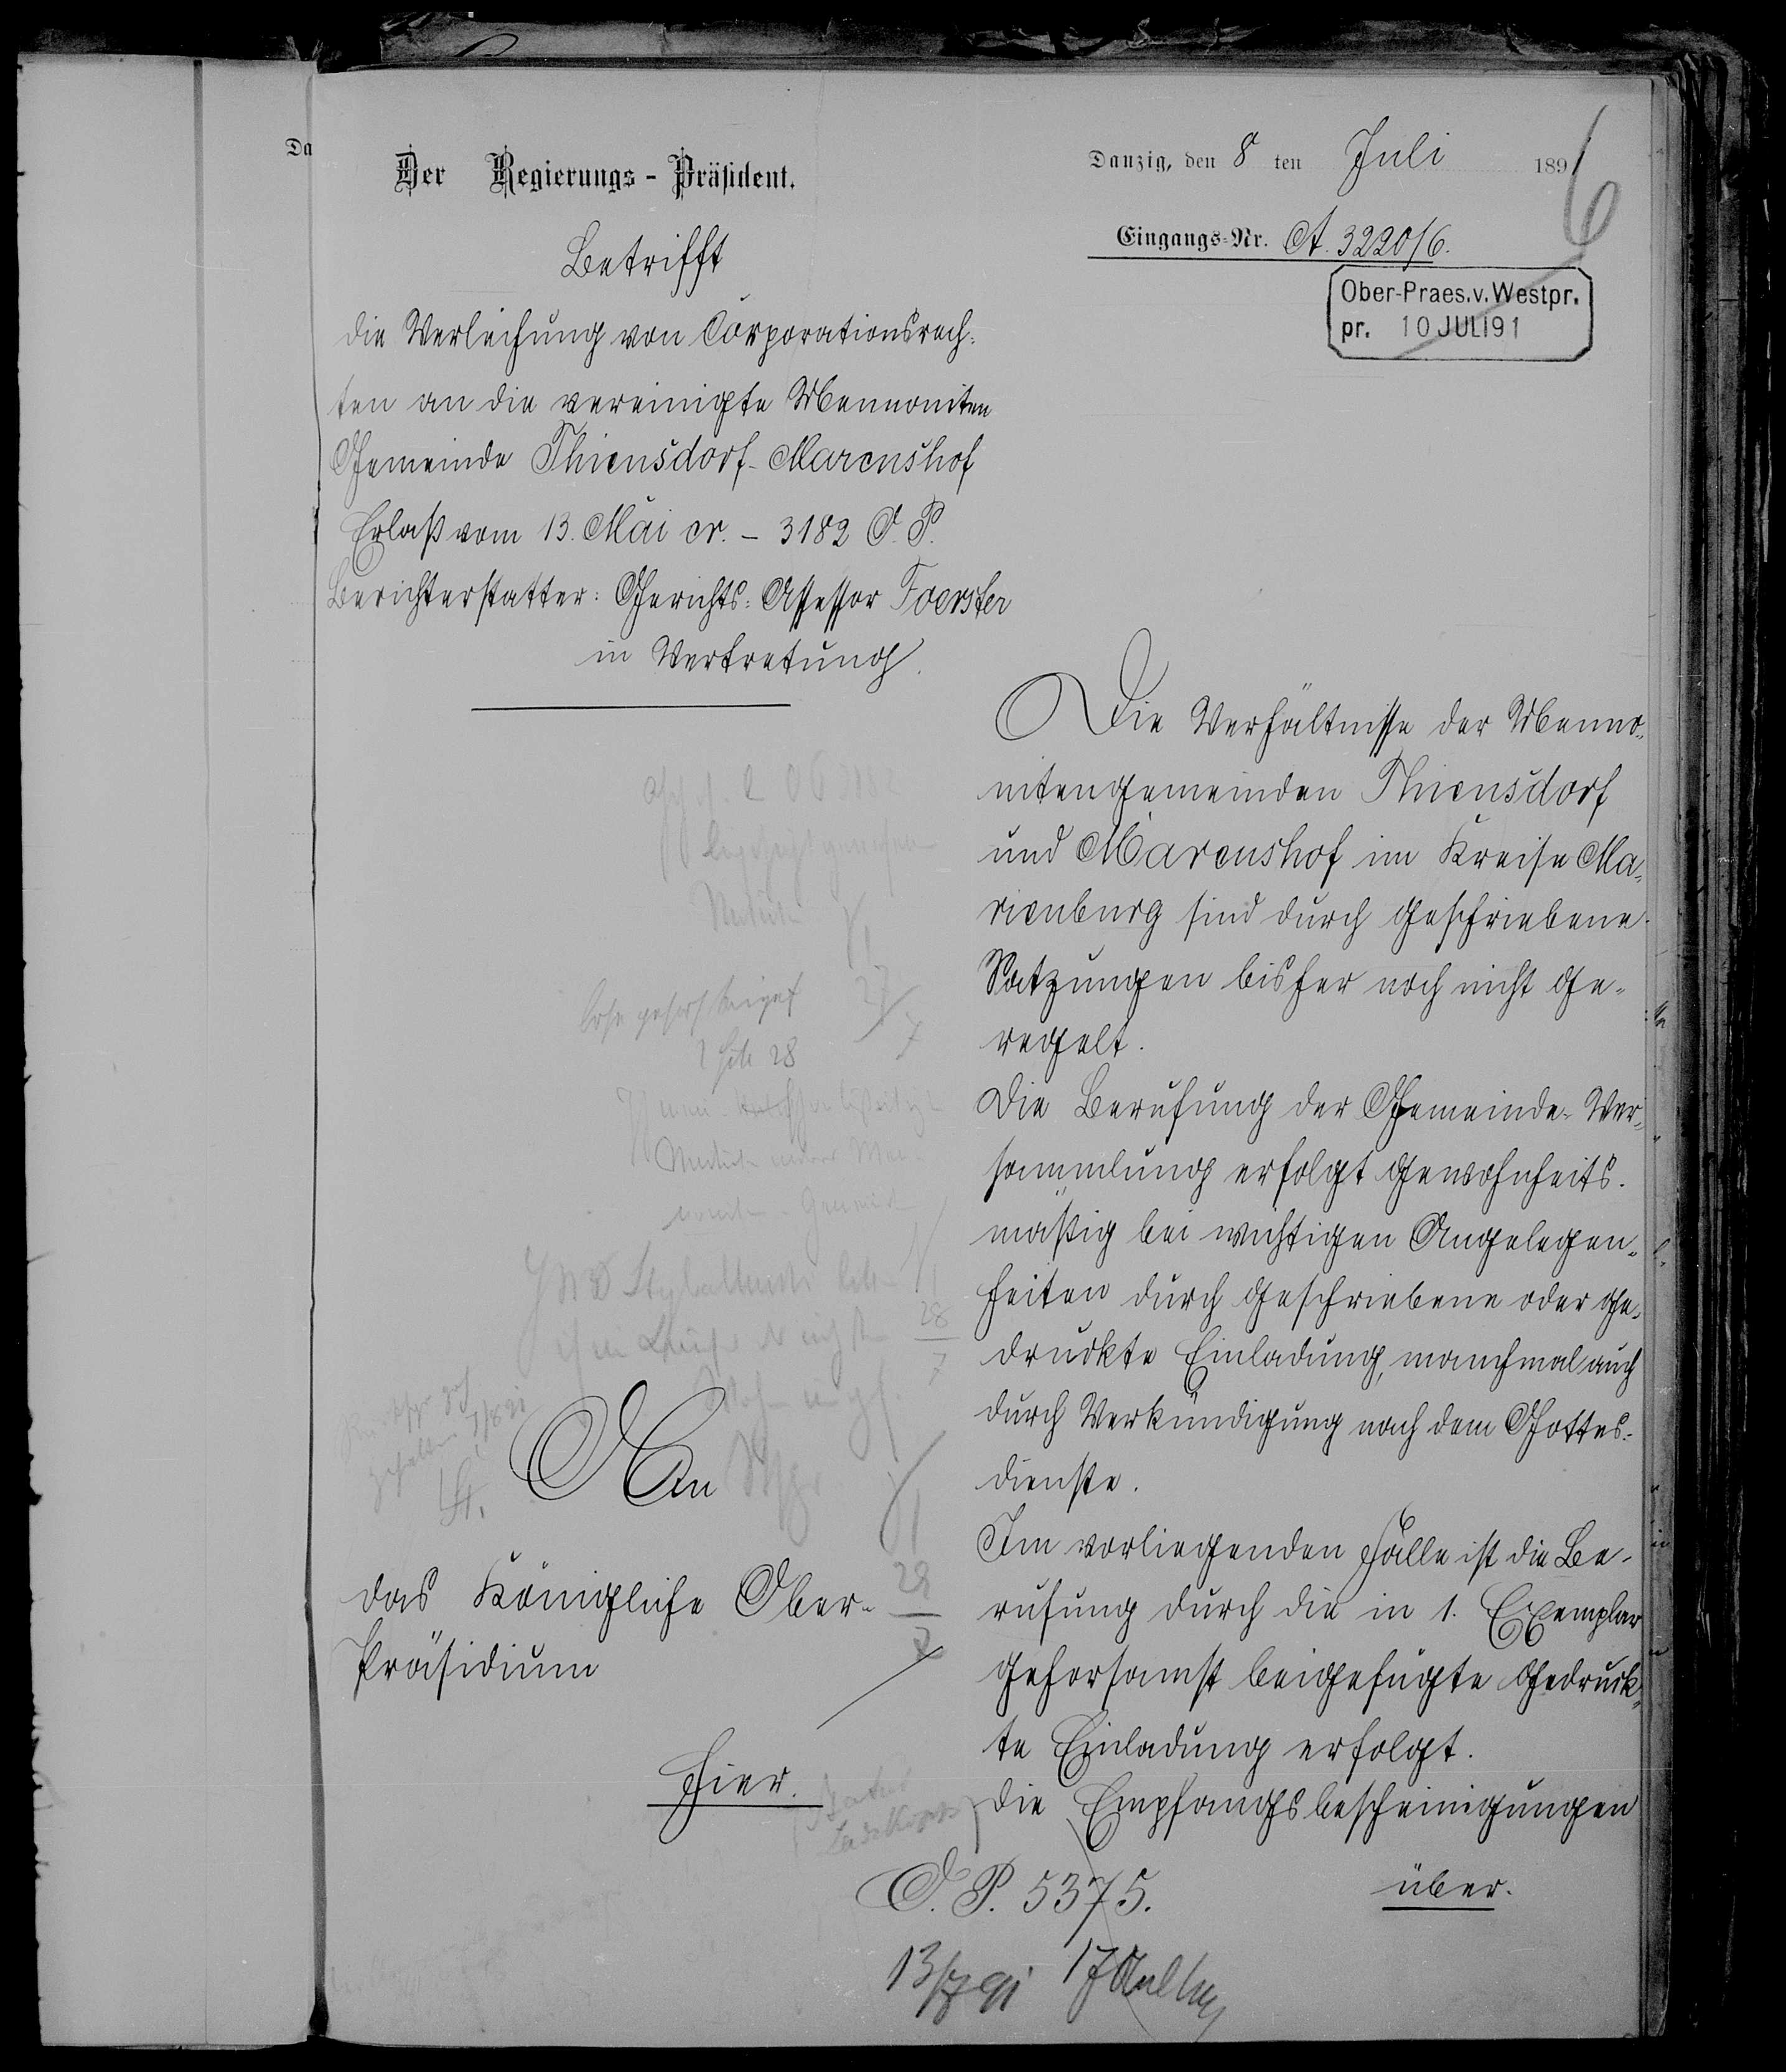 Da
Der Regierungs-Präsident.
Danzig, den 8 ten Juli 1891
6
Eingangs-Nr. A. 3220/6.
Ober-Praes.v.Westpr.
pr. 10 JULI 91
Betrifft
die Verleihung von Corporationsrech-
ten an die vereinigte Mennoniten
Gemeinde Thiensdorf-Marcushof
Erlaß vom 13. Mai cr. – 3182 O. P.
Berichterstatter: Gerichts-Assessor Foerster
in Vertretung.
Die Verhältnisse der Menno-
nitengemeinden Thiensdorf
und Marcushof im Kreise Ma-
rienburg sind durch geschriebene
Satzungen bisher noch nicht ge-
regelt.
Die Berufung der Gemeinde-Ver-
sammlung erfolgt gewohnheits-
mäßig bei wichtigen Angelegen-
heiten durch geschriebene oder ge-
druckte Einladung, manchmal auch
durch Verkündigung nach dem Gottes-
dienste.
Im vorliegenden Falle ist die Be-
rufung durch die in 1. Exemplar
gehorsamst beigefügte gedruck-
te Einladung erfolgt.
Die Empfangsbescheinigungen
über.
27/7
28
28/7
An
das Königliche Ober-
Präsidium
28/7
Hier.
O. P. 5375.
13/7 91